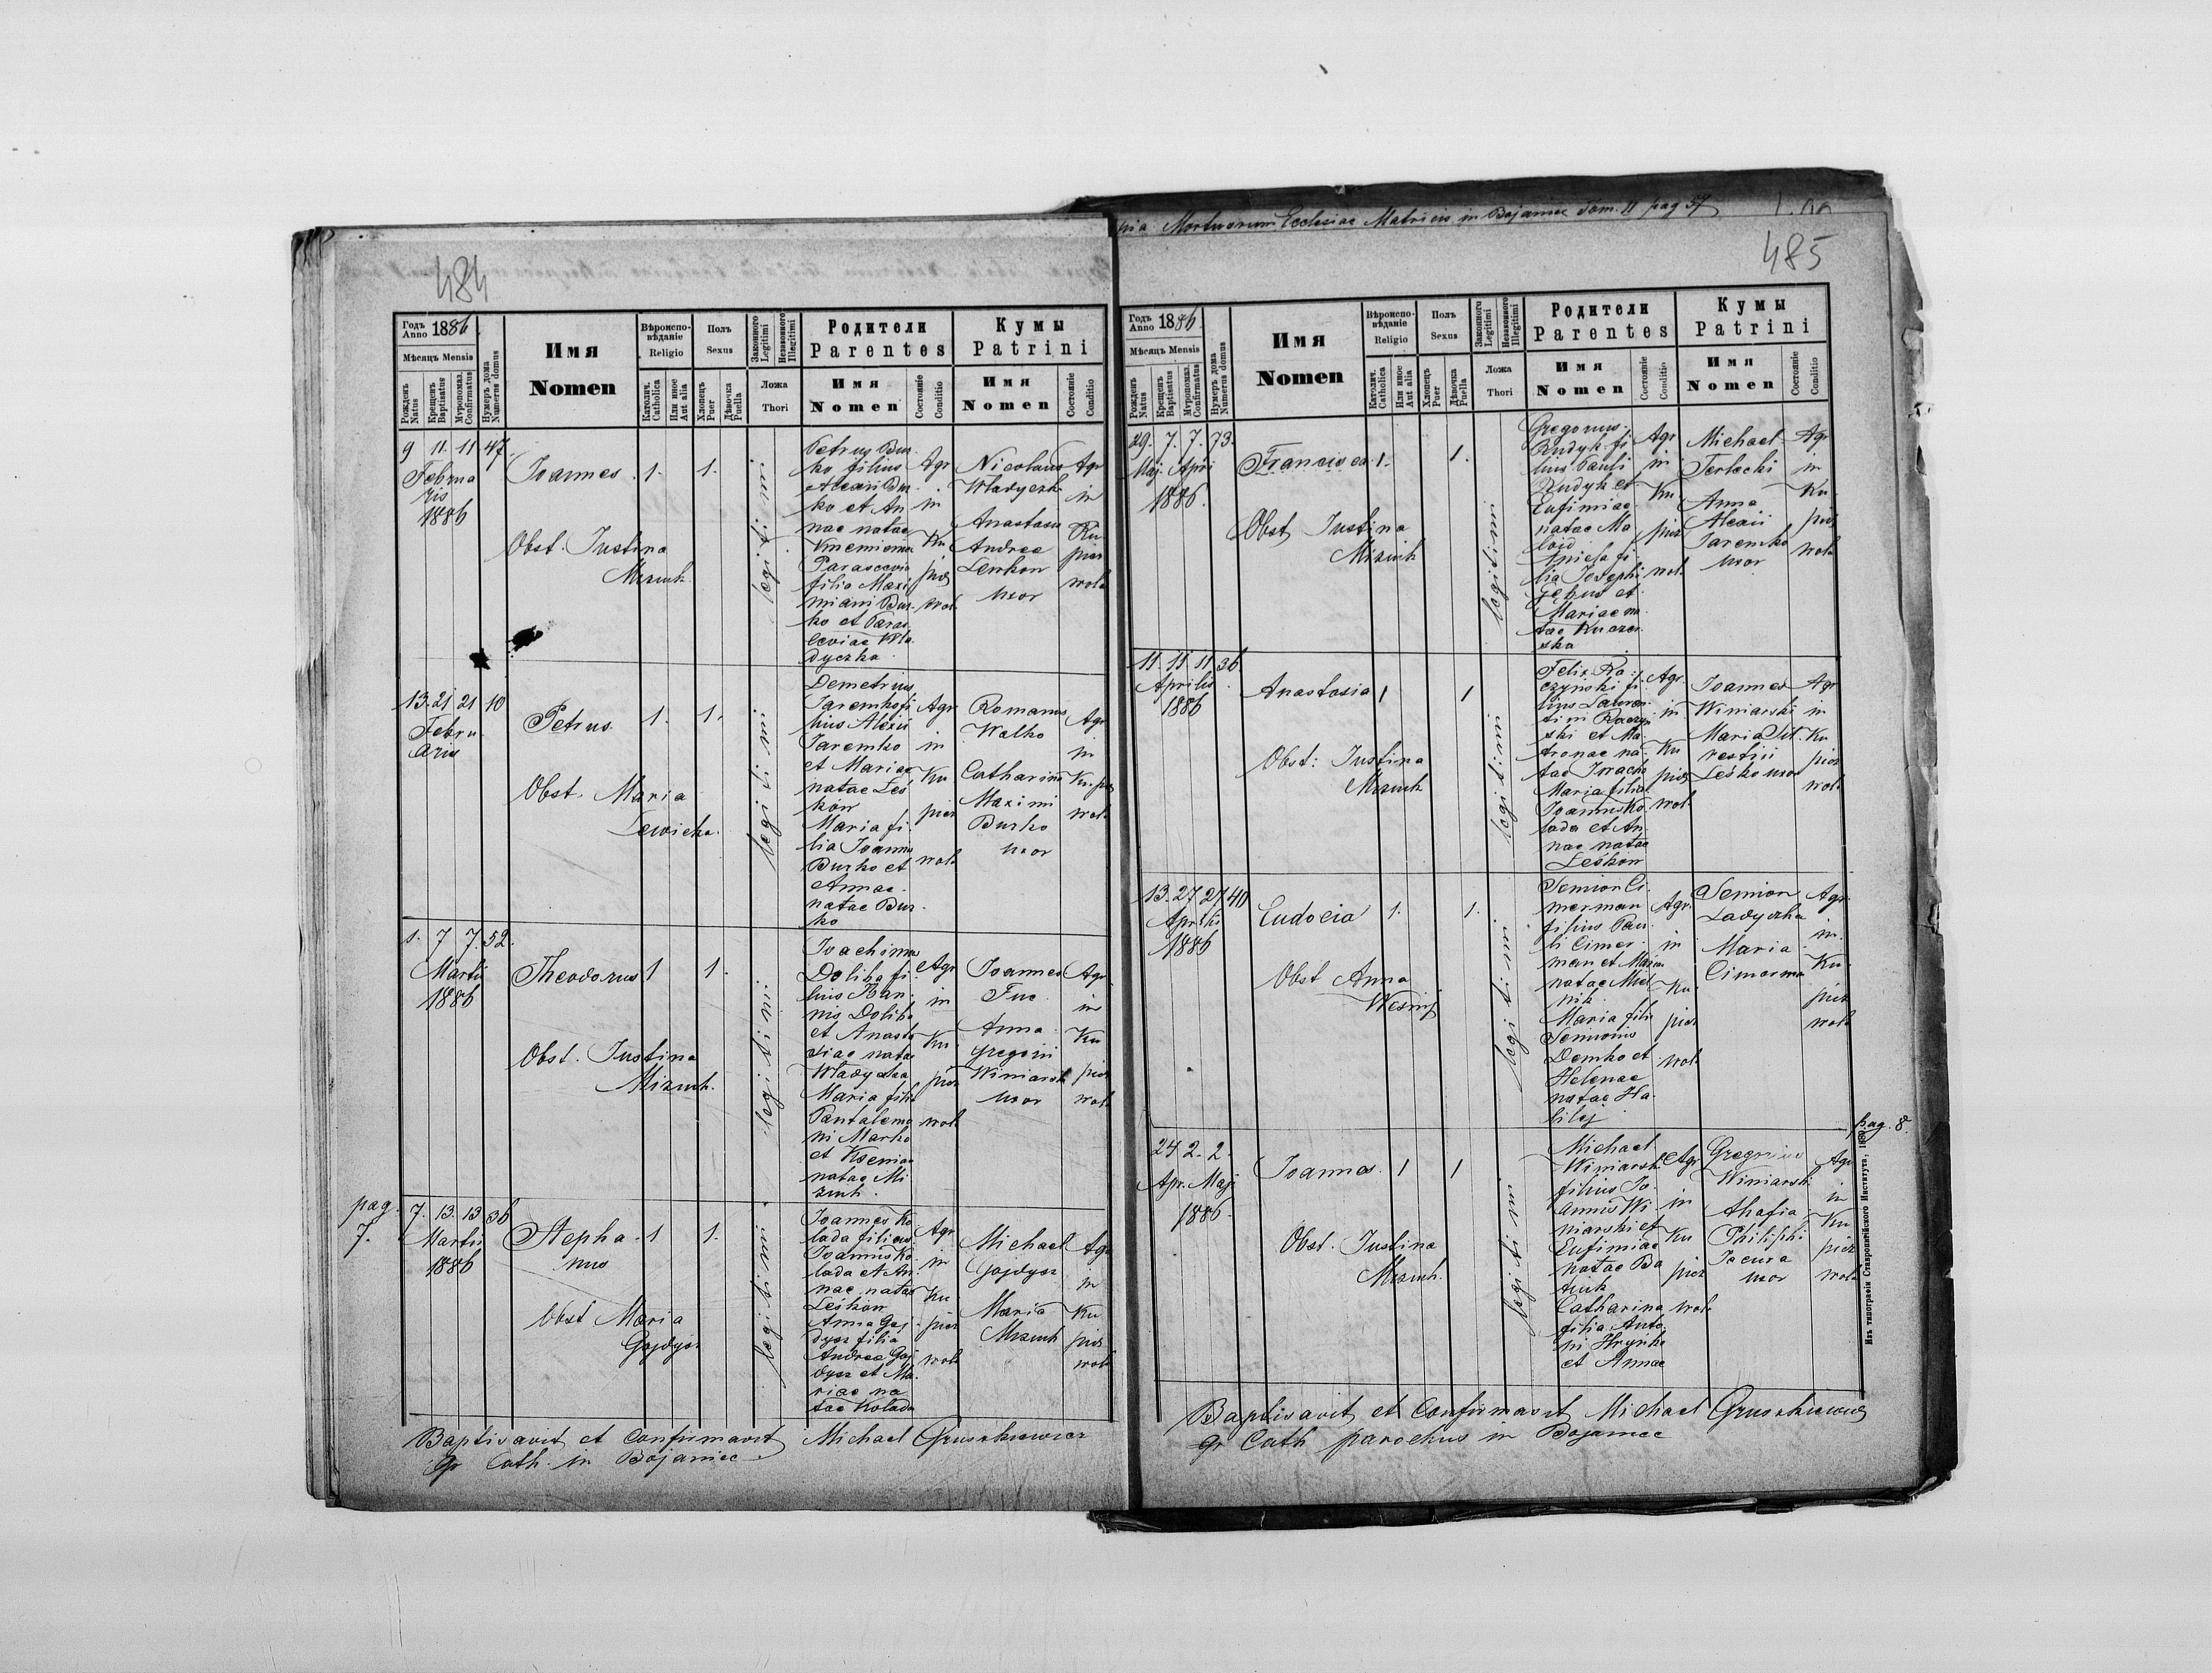 484
Годъ Anno 1886.
Мѣсяцъ Mensis
Рожденъ Natus
Крещенъ Baptisatus
Мѵропомаз. Confirmatus
Нумеръ дома Numerus domus
Имя
Nomen
Вѣроиспо-
вѣданіе
Religio
Католич. Catholica
Или иное Aut alia
Полъ
Sexus
Хлопецъ Puer
Дѣвочка Puella
Законного Legitimi
Незаконного Illegitimi
Ложа
Thori
Родители
Parentes
Имя
Nomen
Состояніе Conditio
Кумы
Patrini
Имя
Nomen
Состояніе Conditio
9 11. 11 47.
Februa
ris
1886
Joannes. 1. 1.
Obst. Justina
Miziuk.
legitimi
Petrus Bur-
ko filius
Alexii Bur-
ko et An
nae natae
Parascevia
filia Maxi
miani Bur-
ko et Paras
ceviae Wła
dyczka
Agr
in
Ku
picz
wola
Nicolaus
Władyczka
Anastasia
Andrea
Lenkon
uxor
Agr
in
Ku
picz
wola
13. 21 21 10
Febru
aris
Petrus 1. 1.
Obst. Maria
Lewicka.
legitimi
Demetrius
Jaremko fi
lius Alexii
Jaremko
et Mariae
natae Leś
kow
Maria fi-
lia Joannis
Burko et
Annae
natae Bur-
ko
Agr
in
Ku
picz
wola
Romanus
Walko
Catharina
Maximi
Burko
uxor
Agr
in
Ku-picz
wola
1. 7 7. 52.
Martii
1886
Theodorus 1 1.
Obst. Justina
Miziuk.
legitimi
Joachimus
Doliba fi
lius Joan-
nis Doliba
et Anasta
siae natae
Władyczka
Maria filia
Pantalemo
ni Marko
et Kseniae
natae Mi
ziuk.
Agr
in
Ku
picz
wola
Joannes
Fuc
Anna
Gregorii
Winiarsk
uxor
Agr
in
Ku
picz
wola
pag.
7.
7. 13. 13 36
Martii
1886
Stepha-
nus 1 1.
Obst Maria
Gajdysz
legitimi
Joannes Ko
lada filius
Joannis Ko
lada et An
nae natae
Leśkow
Anna Gaj-
dysz filia
Andrea Gaj
dysz et Ma-
riae na
tae Kolada
Agr
in
Ku
picz
wola
Michael
Gajdysz
Maria
Miziuk
Agr
in
Ku
picz
wola
Baptisavit et Confirmavit Michael Gruszkiewicz
gr Cath. in Bojaniec.
pia Mortuorum Ecclesiae Matricis in Bojaniec Tom. II pag 57
485
Годъ Anno 1886.
Мѣсяцъ Mensis
Рожденъ Natus
Крещенъ Baptisatus
Мѵропомаз. Confirmatus
Нумеръ дома Numerus domus
Имя
Nomen
Вѣроиспо-
вѣданіе
Religio
Католич. Catholica
Или иное Aut alia
Полъ
Sexus
Хлопецъ Puer
Дѣвочка Puella
Законного Legitimi
Незаконного Illegitimi
Ложа
Thori
Родители
Parentes
Имя
Nomen
Состояніе Conditio
Кумы
Patrini
Имя
Nomen
Состояніе Conditio
29. 7. 7. 73.
Maj. Apri
1886.
Francisca 1. 1.
Obst Justina
Miziuk
legitimi
Gregorius
Rudyk fi
lius Pauli
Rudyk et
Eufimiae
natae Ma
łoid
Aniela fi
lia Josephi
Mariae na
tae
Agr
in
Ku
picz
wola
Michael
Terlecki
Anna
Alexii
Jaremko
uxor
Agr
in
Ku
picz
wola
11 11 11 36
Aprilis
1886
Anastasia 1 1
Obst: Justina
Miziuk
legitimi
Felix Ra
czyński fi
lius Lauren
tini Raczyń
ski et Ma
tronae na
tae
Maria filia
Joannis Ko
lada et An
nae natae
Leśkow
Agr.
in
Ku
picz
wola
Joannes
Winiarski
Maria Sil-
vestrii
Leśko uxor
Agr
in
Ku
picz
wola
13. 27 27 40
Aprilis
1886
Eudocia 1. 1.
Obst Anna
legitimi
Semion Ci-
merman
filius Pau
li Cimer-
man et Mariae
natae Miel
nik
Maria filia
Semionis
Demko et
Helenae
natae Ha-
lilej
Agr.
in
Ku
picz
wola
Semion
Ladyczka
Maria
Cimerman
Agr.
in
Ku
picz
wola
24 2. 2.
Apr. Maji
1886.
Joannes. 1 1
Obst. Justina
Miziuk.
legitimi
Michael
Winiarski
filius Jo-
annis Wi
niarski et
Eufimiae
natae Ba
tiuk
Catharina
filia Anto
ni Hryńko
et Annae
Agr
in
Ku
picz
wola
Gregorius
Winiarski
Ahafia
Philiphi
Jacura
uxor
Agr
in
Ku
picz
wola
pag. 8.
Baptisavit et Confirmavit Michael Gruszkiewicz
gr Cath parochus in Bojaniec
Изъ типографіи Ставропигійского Института, 1880.